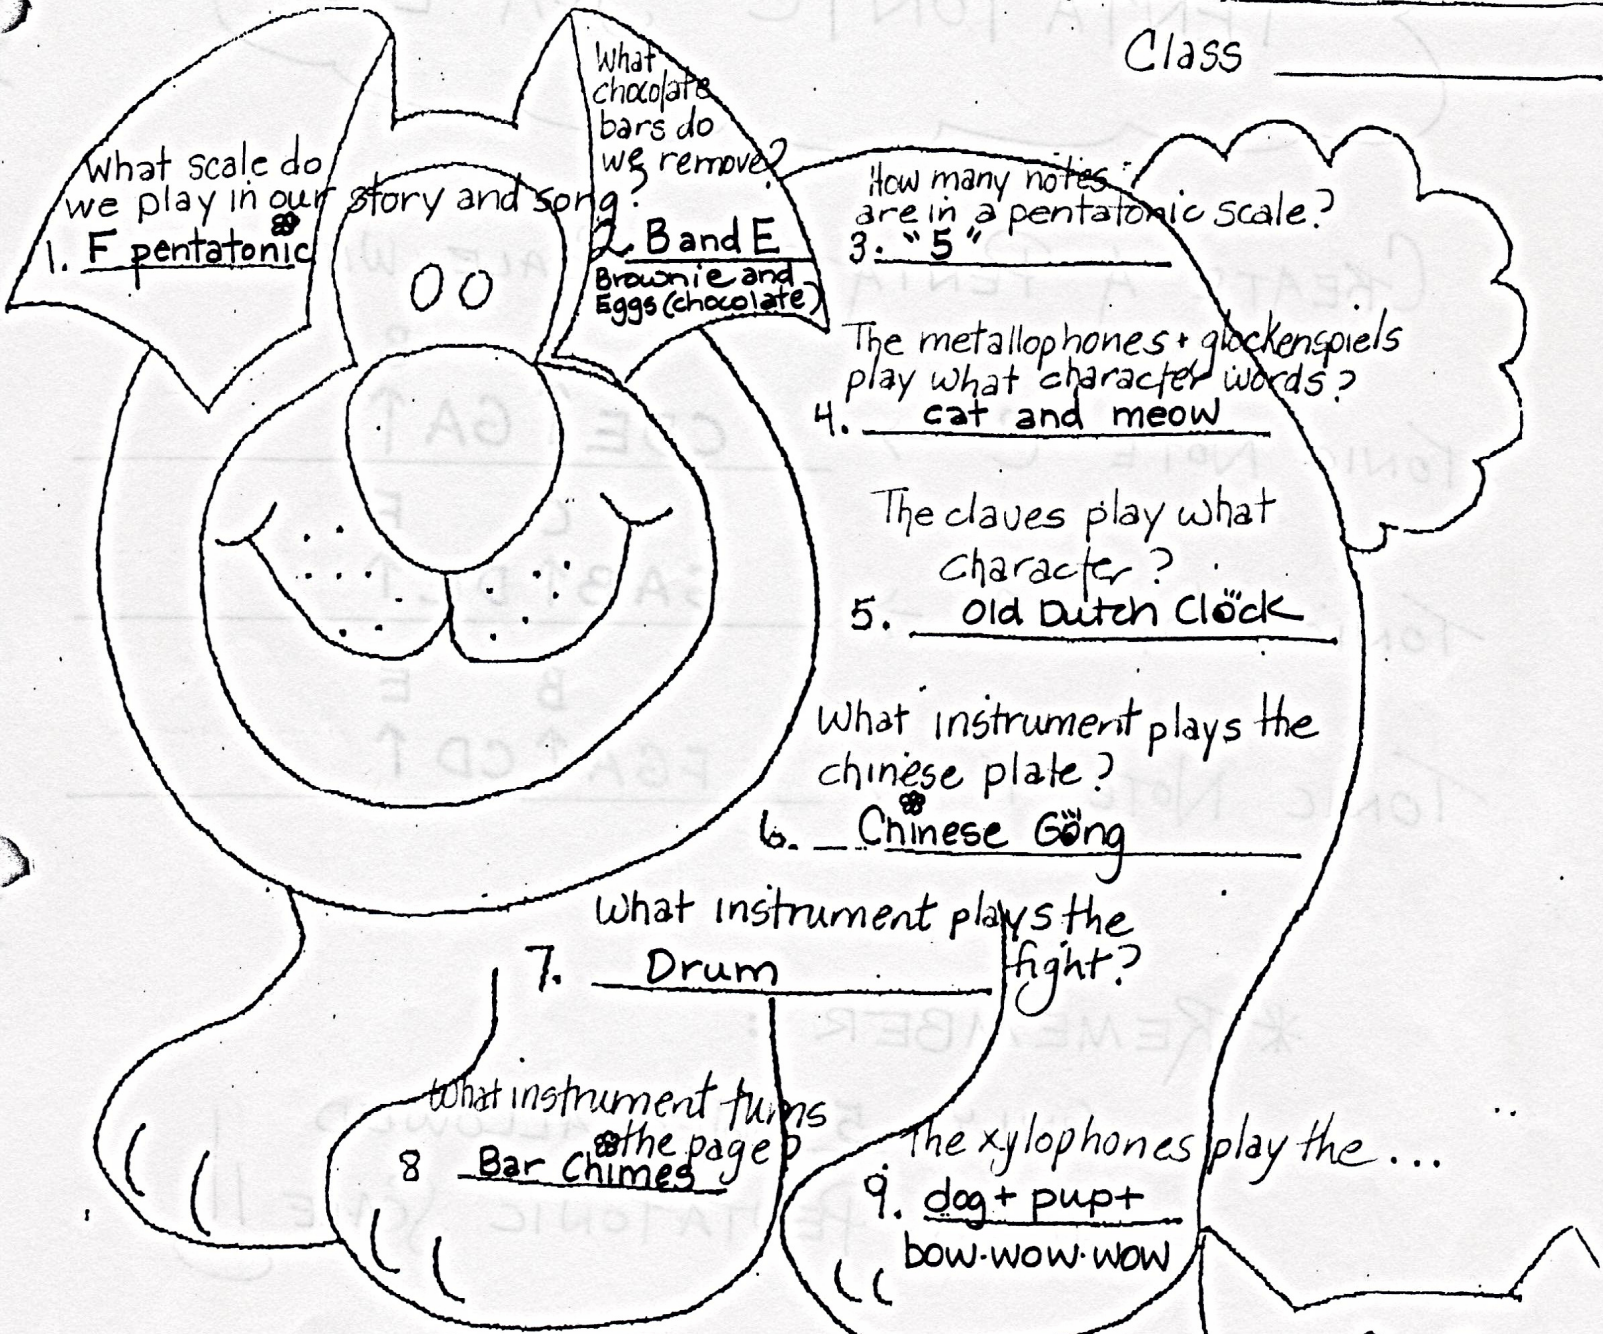 Class
What scale do
we play in our story and song?
1. F pentatonic
What
chocolate
bars do
we remove?
2. B and E
Brownie and
Eggs (chocolate)
How many notes
are in a pentatonic scale?
3. "5"
The metallophones + glockenspiels
play what character words?
4. cat and meow
The claves play what
character?
5. Old Dutch Clock
What instrument plays the
chinese plate?
6. Chinese Gong
What instrument plays the
fight?
7. Drum
What instrument turns
the page?
8 Bar Chimes
The xylophones play the...
9. dog + pup +
bow-wow-wow
TENTATONIC
CREATE A PENTA
CDE GA↑
C F
TONIC NOTE C
GAB↑DE↑
B E
FGA↑CD↑
TONIC NOTE
* REMEMBER:
5
ALLOWED
PENTATONIC